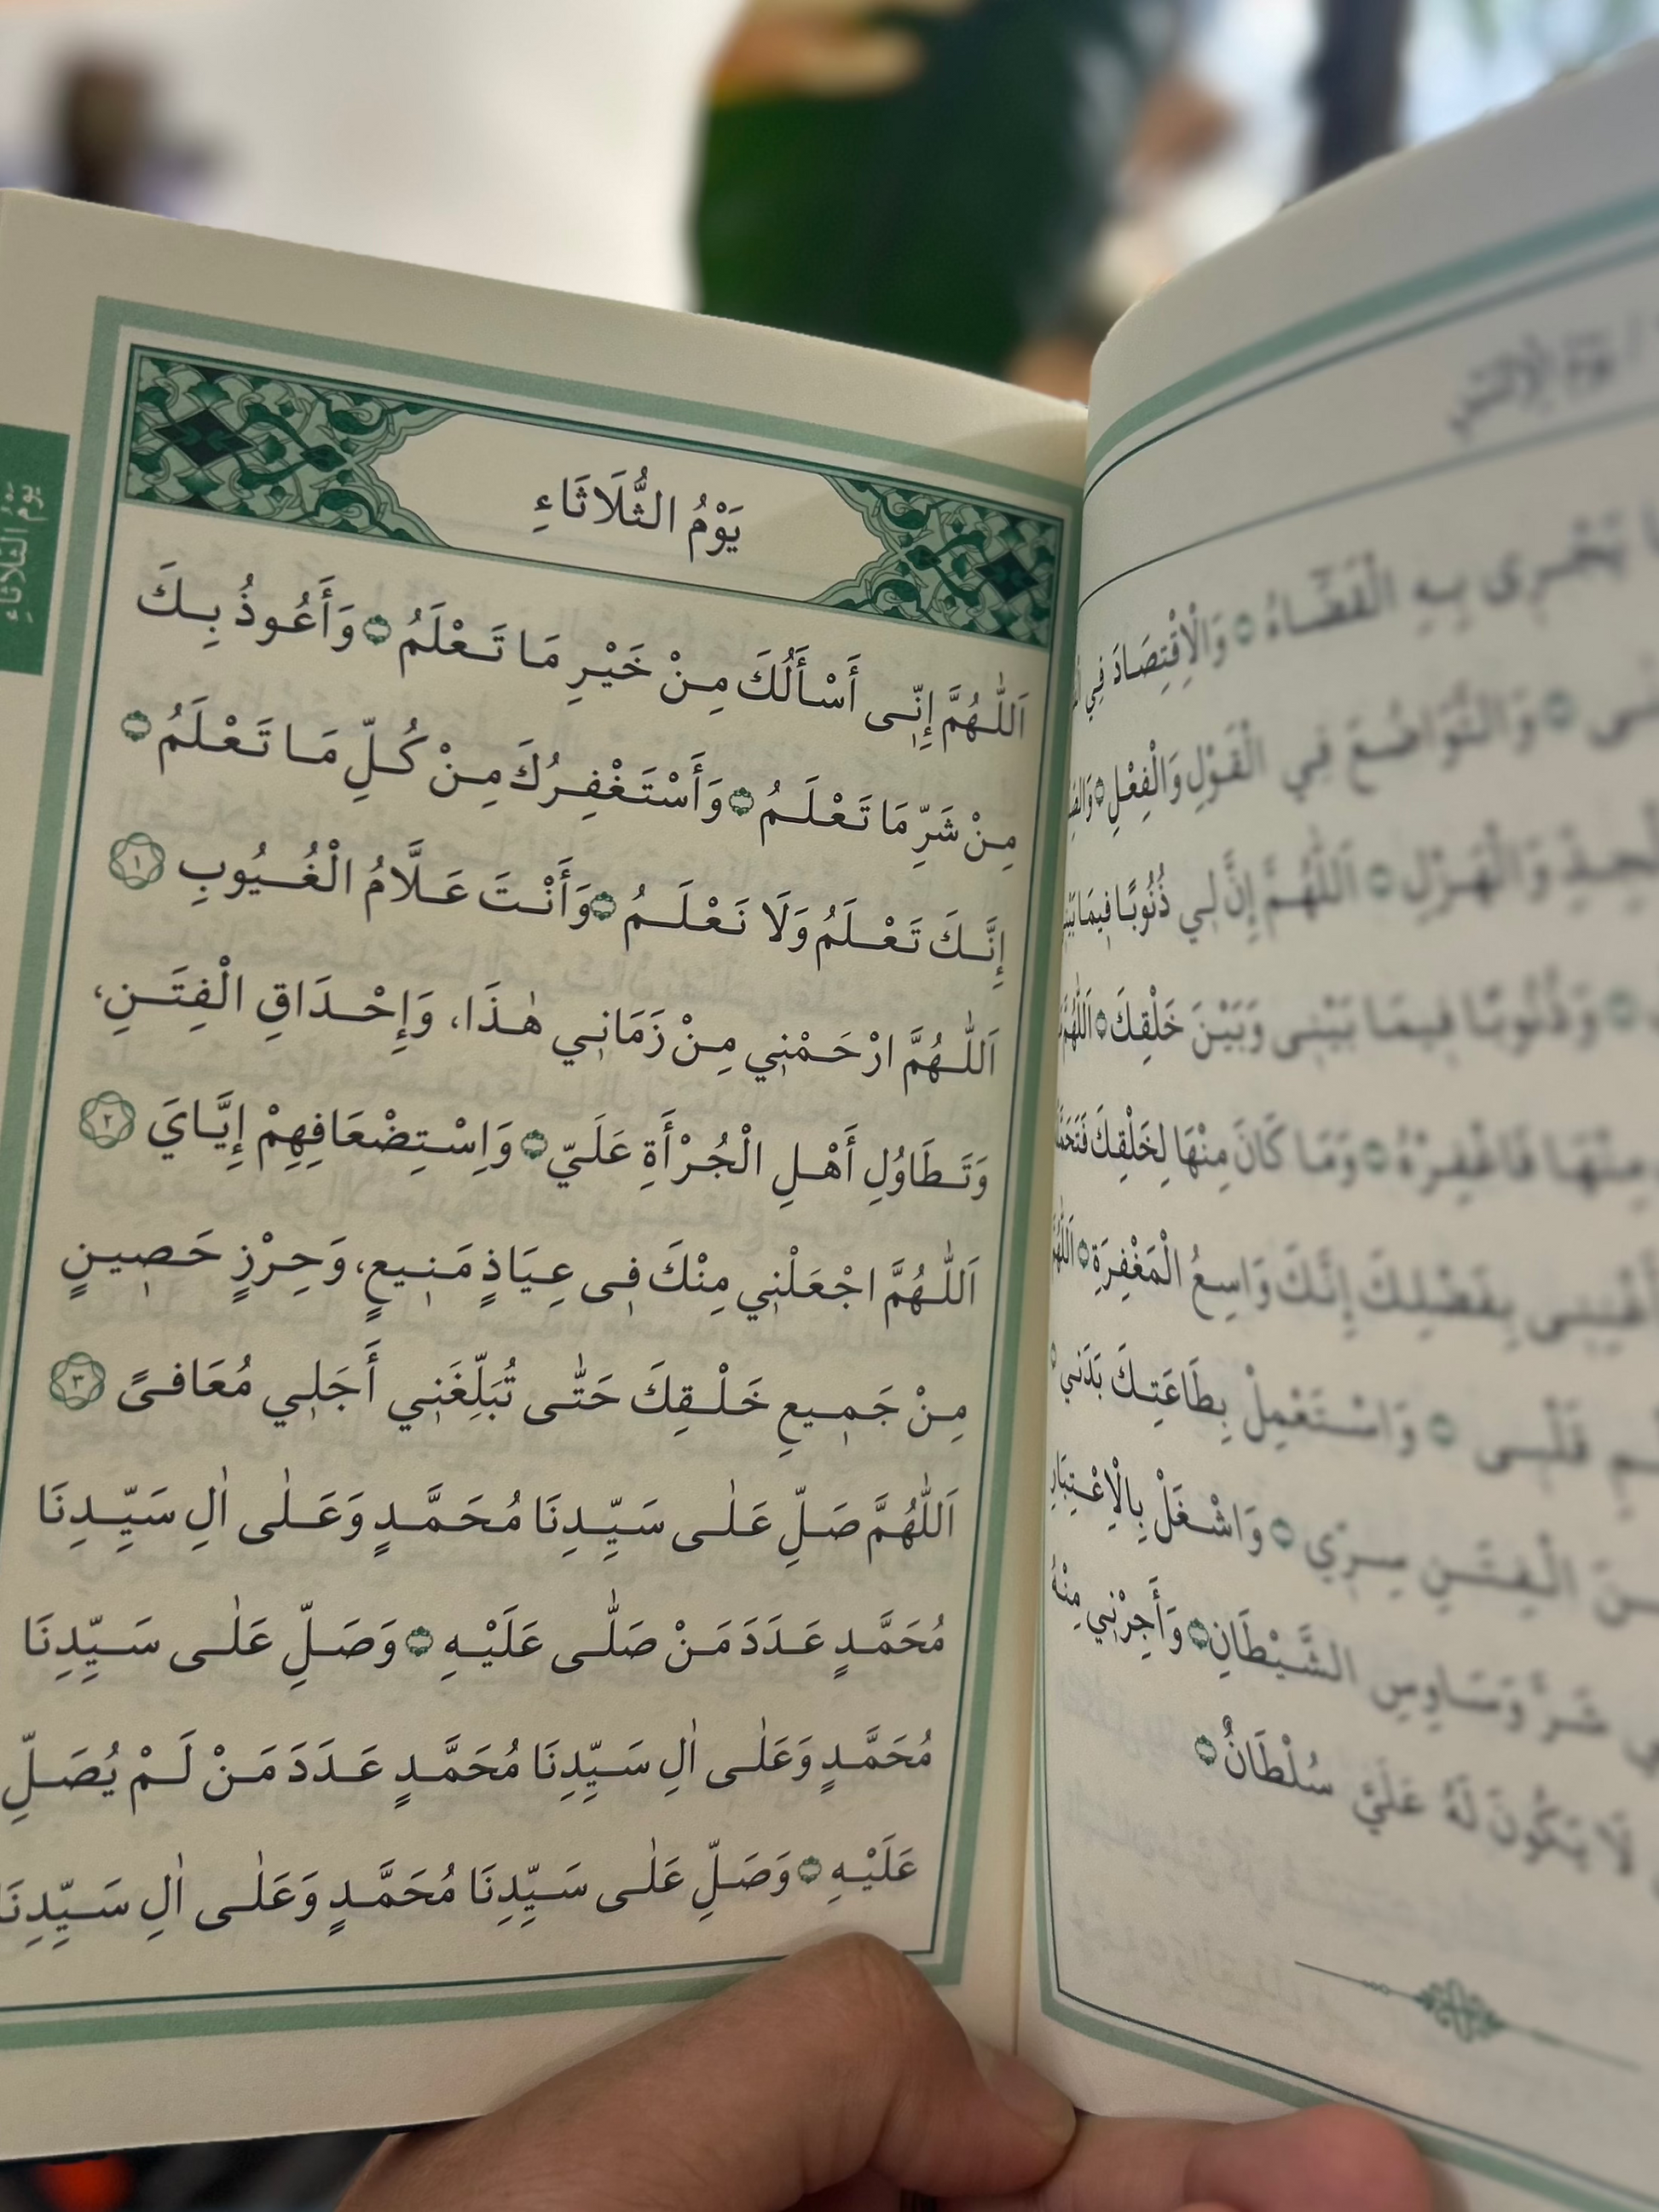 يَوْمُ الثُّلَاثَاءِ
يَوْمُ الثُّلَاثَاءِ
اَللّٰهُمَّ إِنِّى أَسْأَلُكَ مِنْ خَيْرِ مَا تَعْلَمُ وَأَعُوذُ بِكَ
مِنْ شَرِّ مَا تَعْلَمُ وَأَسْتَغْفِرُكَ مِنْ كُلِّ مَا تَعْلَمُ
إِنَّكَ تَعْلَمُ وَلَا نَعْلَمُ وَأَنْتَ عَلَّامُ الْغُيُوبِ ١
اَللّٰهُمَّ ارْحَمْنِي مِنْ زَمَانِي هٰذَا، وَإِحْدَاقِ الْفِتَنِ،
وَتَطَاوُلِ أَهْلِ الْجُرْأَةِ عَلَيّ وَاِسْتِضْعَافِهِمْ إِيَّايَ ٢
اَللّٰهُمَّ اجْعَلْنِي مِنْكَ فِى عِيَاذٍ مَنِيعٍ، وَحِرْزٍ حَصِينٍ
مِنْ جَمِيعِ خَلْقِكَ حَتّٰى تُبَلِّغَنِي أَجَلِي مُعَافىً ٣
اَللّٰهُمَّ صَلِّ عَلٰى سَيِّدِنَا مُحَمَّدٍ وَعَلٰى اٰلِ سَيِّدِنَا
مُحَمَّدٍ عَدَدَ مَنْ صَلّٰى عَلَيْهِ وَصَلِّ عَلٰى سَيِّدِنَا
مُحَمَّدٍ وَعَلٰى اٰلِ سَيِّدِنَا مُحَمَّدٍ عَدَدَ مَنْ لَمْ يُصَلِّ
عَلَيْهِ وَصَلِّ عَلٰى سَيِّدِنَا مُحَمَّدٍ وَعَلٰى اٰلِ سَيِّدِنَا
يَوْمُ الْاِثْنَيْنِ
يَجْرِى بِهِ الْقَضَاءُ وَالْاِقْتِصَادَ فِي
وَالتَّوَاضُعَ فِي الْقَوْلِ وَالْفِعْلِ
وَالْهَزْلِ اَللّٰهُمَّ إِنَّ لِي ذُنُوبًا فِيمَا
وَذُنُوبًا فِيمَا بَيْنِى وَبَيْنَ خَلْقِكَ اَللّٰهُمَّ
مِنْهَا فَاغْفِرْهُ وَمَا كَانَ مِنْهَا لِخَلْقِكَ
بِفَضْلِكَ إِنَّكَ وَاسِعُ الْمَغْفِرَةِ
قَلْبِى وَاسْتَعْمِلْ بِطَاعَتِكَ بَدَنِي
الْفِتَنِ سِرِّي وَاشْغَلْ بِالْاِعْتِبَارِ
شَرَّ وَسَاوِسِ الشَّيْطَانِ وَأَجِرْنِي مِنْهُ
لَا يَكُونَ لَهُ عَلَيَّ سُلْطَانٌ